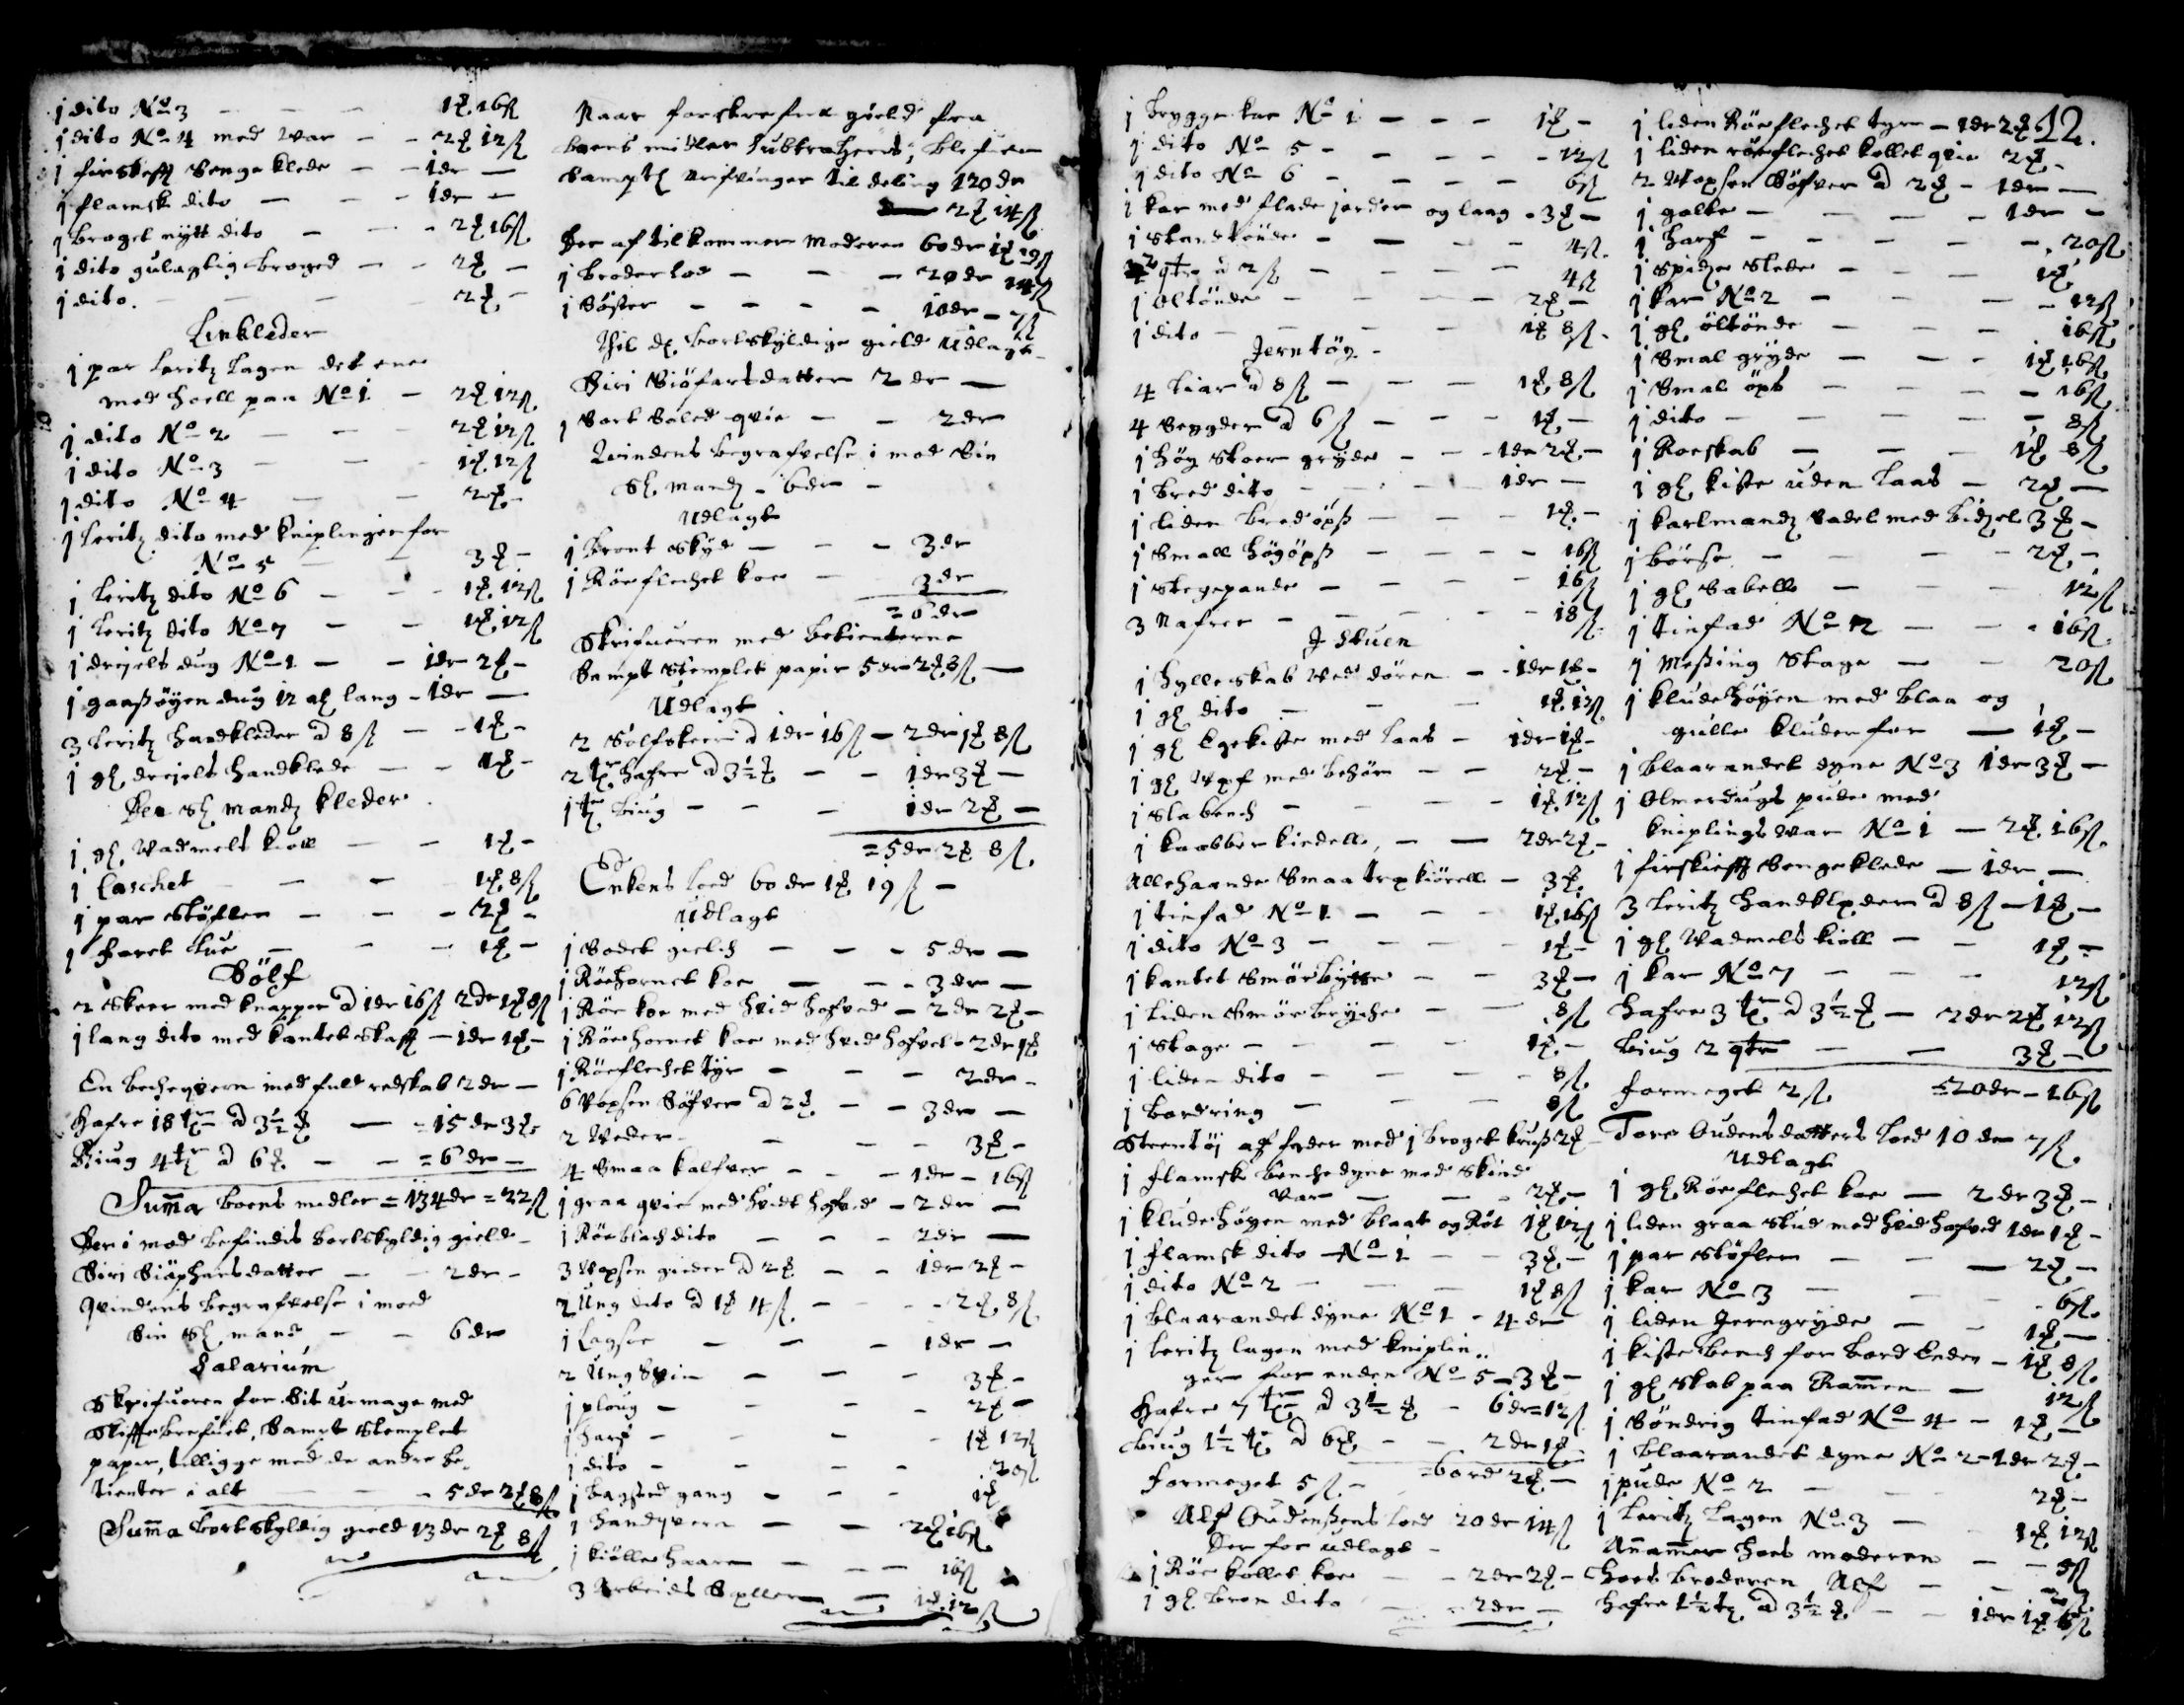 j dito No 3 - - - 1 ℥ 16 ß
j dito No 4 med War - - 2 ℥ 12 ß
j firskefft Senge klede - - 1 dr -
j flamsk dito - - - 1 dr -
j broget nytt dito - - - 2 ℥ 16 ß
j dito gulagtig broged - - 2 ℥ -
j dito - - - 2 ℥ -
Linkleder
j par leritz lagen det ene
med hoell paa No 1 - 2 ℥ 12 ß
j dito No 2 - - - 2 ℥ 12 ß
j dito No 3 - - - 1 ℥ 12 ß
j dito No 4 - - 2 ℥ -
j leritz dito med kniplinger for
No 5 - - 3 ℥ -
j leritz dito No 6 - - - 1 ℥ 12 ß
j leritz dito No 7 - - 1 ℥ 12 ß
j drejels dug No 1 - - 1 dr 2 ℥ -
j gaasøyen dug 12 al lang - 1 dr -
3 leritz handkleder a 8 ß - - 1 ℥ -
j gl drejels handklede - - 1 ℥ -
Den Sl mandz kleder
j gl Vadmels kioll - - 1 ℥ -
j Caschet - - - 1 ℥ 8 ß
j par støfler - - - 2 ℥ -
j foret lue - - - 1 ℥ -
Sölf
2 skeer med knapper a 1 dr 16 ß 2 dr 1 ℥ 8 ß
j lang dito med kantet skafft - 1 dr 1 ℥ -
En bechequern med fuld redskab 2 dr -
Hafre 18 tr a 3½ ℥ - = 15 dr 3 ℥
Biug 4 tr a 6 ℥ - - = 6 dr -
Suma boens medler = 134 dr = 22 ß
Der i mod befindis bortskyldig gield -
Siri Siöphars datter - - 2 dr -
Qvindens begrafvelse i moed
Sin Sl mand - - 6 dr
Salarium
Skrifueren for Sit Umage med
Skifftebrefuet, Sampt Stemplet
papir, tilligge med de andre be-
tienter i alt - - - 5 dr 2 ℥ 8 ß
Suma bortskyldig gield 13 dr 2 ℥ 8 ß
Naar forskrefne gield fra
boens midler Subtraheris, blifuer
Samptl Arfvinger til deling 120 dr
- 2 ℥ 14 ß
Der af tilkommer moderen 60 dr 1 ℥ 19 ß
j broder lod - - - 20 dr 14 ß
j Söster - - - - 10 dr - 7 ß
Thil d. bortskyldige gield Udlagt
Siri Siöfarsdatter 2 dr -
j Sort Soled qvie - - 2 dr
Qvindens begrafvelse i mod Sin
Sl. mandz - 6 dr -
Udlagt
j bront Skyd - - - 3 dr
j Röe flechet koe - 3 dr
= 6 dr
Skrifueren med betienterne
Sampt Stemplet papir 5 dr 2 ℥ 8 ß -
Udlagt
2 Sølfskeer a 1 dr 16 ß - 2 dr 1 ℥ 8 ß
2 tr hafre a 3½ ℥ - - 1 dr 3 ℥ -
j tr biug - - - 1 dr 2 ℥ -
= 5 dr 2 ℥ 8 ß
Enkens loed 60 dr 1 ℥ 19 ß -
Udlagt
j Sodet gielch - - - 5 dr -
j Röehornet koe - - - 3 dr -
j Röe koe med hvid hofved - 2 dr 2 ℥ -
j Röe hornet koe med hvid hofvet - 2 dr 1 ℥
j Röeflechet tyr - - - 2 dr -
6 Vopsen Söfver a 2 ℥ - - 3 dr -
2 Veder - - - - 3 ℥ -
4 Smaa kalfver - - - 1 dr - 16 ß
j graa qvie med hvidt hofved - 2 dr -
j Röeblach dito - - - 2 dr -
3 Vopsen gieder a 2 ℥ - - 1 dr 2 ℥ -
2 Ung dito a 1 ℥ 4 ß - - - 2 ℥ 8 ß
j Lagsoe - - - 1 dr -
2 Ung Svin - - - 3 ℥ -
j ploug - - - - 2 ℥ -
j harf - - - - 1 ℥ 12 ß
j dito - - - - 20 ß
j bagsted gang - - - 1 ℥
j handqvern - - 2 ℥ 16 ß
j kiölle haare - - - 16 ß
3 Arbeids Seller - 1 ℥ 12 ß
12.
j brygge kar No 1 - - - 1 ℥ -
j dito No 5 - - - - 12 ß
j dito No 6 - - - - 6 ß
j kar med flade jorder og laag - 3 ℥ -
j Standtönde - - - - 4 ß
2 qtr a 2 ß - - - - 4 ß
j öltönde - - - - 2 ℥ -
j dito - - - - 1 ℥ 8 ß
Jerntøy -
4 liar a 8 ß - - - 1 ℥ 8 ß
4 Segder a 6 ß - - - 1 ℥ -
j høg skoer gryde - - - 1 dr 2 ℥ -
j bred dito - - - 1 dr -
j liden bred öps - - - 1 ℥ -
j Small högöps - - - - 16 ß
j Stegepande - - - - 16 ß
3 Nafrer - - - - 18 ß
J Stuen
j hylleskab Ved dören - - 1 dr 1 ℥ -
j gl dito - - - 1 ℥ 12 ß
j gl Egekiste med laas - 1 dr 1 ℥ -
j gl Vef med behör - - 2 ℥ -
j Slabench - - - - 1 ℥ 12 ß
j kaabber kiedell - - 2 dr 2 ℥ -
Allehaande Smaa træ kiörell - 3 ℥
j tinfad No 1 - - - 1 ℥ 16 ß
j dito No 3 - - - - 1 ℥ -
j kantet Smörbytte - - 3 ℥ -
j liden Smörbrycke - - 8 ß
j Stage - - - - 1 ℥ -
j liden dito - - - - 8 ß
j bordring - - - - 8 ß
Steentöj af fader med j broget krus 2 ℥ -
j flamsk benchedyne med Skind
Var - - - 2 ℥ -
j kludehøyen med blaat og Röt 1 ℥ 12 ß
j flamsk dito - No 1 - - 3 ℥ -
j dito No 2 - - - 1 ℥ 8 ß
j blaarandet dyne No 1 - 4 dr
j leritz lagen med kniplin..
ger for enden No 5 - 3 ℥ -
Hafre 7 tr a 3½ ℥ - 6 dr = 12 ß
biug 1½ tr a 6 ℥ - - 2 dr 1 ℥ -
formeget 5 ß - = 60 rd 2 ℥ -
Alf Oudensens loed 20 dr 14 ß
Der for udlagt -
j Röe kollet koe - - 2 dr 2 ℥ -
j gl bron dito - - 2 dr -
j liden Röeflechet tyr - 1 dr 2 ℥
j liden röeflechet kollet qvie 2 ℥ -
2 Vopsen Söfver a 2 ℥ - 1 dr -
j galte - - - - 1 dr -
j harf - - - - 20 ß
j Spidze Slede - - - 1 ℥
j kar No 2 - - - - 12 ß
j gl öltönde - - - 16 ß
j Smal gryde - - - 1 ℥ 16 ß
j Smal öps - - - - 16 ß
j dito - - - - - 8 ß
j Roeskab - - - 1 ℥ 8 ß
j gl kiste uden laas - 2 ℥ -
j karlmandz Sadel med bidzel 3 ℥ -
j börse - - - - 2 ℥ -
j gl Sabell - - - 12 ß
j tinfad No 2 - - - 16 ß
j Messing Stage - - 20 ß
j kludehøyen med blaa og
gulle kluder for - 1 ℥ -
j blaarandet dyne No 3 1 dr 3 ℥ -
j Olmerdugs pude med
kniplings war No 1 - 2 ℥ 16 ß
j firskiefft Sengeklede - 1 dr -
3 leritz handkleder a 8 ß - 1 ℥ -
j gl Vadmels kioll - - 1 ℥ -
j kar No 7 - - - 12 ß
Hafre 3 tr a 3½ ℥ - 2 dr 2 ℥ 12 ß
biug 2 qtr - - 3 ℥ -
formeget 2 ß = 20 dr - 16 ß
Tore Oudensdatters loed 10 dr 7 ß
Udlagt
j gl Röeflechet koe - 2 dr 3 ℥ -
j liden graa Stud med hvid hofved 1 dr 1 ℥ -
j par støfler - - - 2 ℥ -
j kar No 3 - - - 6 ß
j liden Jerngryde - - 1 ℥ -
j kiste bench for bord Enden - 1 ℥ 8 ß
j gl Skab paa Ramen - 12 ß
j Söndrig tinfad No 4 - 1 ℥ -
j blaarandet dyne No 2 - 1 dr 2 ℥ -
j pude No 2 - - - 2 ℥ -
j leritz lagen No 3 - - 1 ℥ 12 ß
Anamer hoes moderen - - 5 ß
hoes broderen Alf - -
hafre 1½ tr a 3½ ℥ - - 1 dr 1 ℥ 6 ß